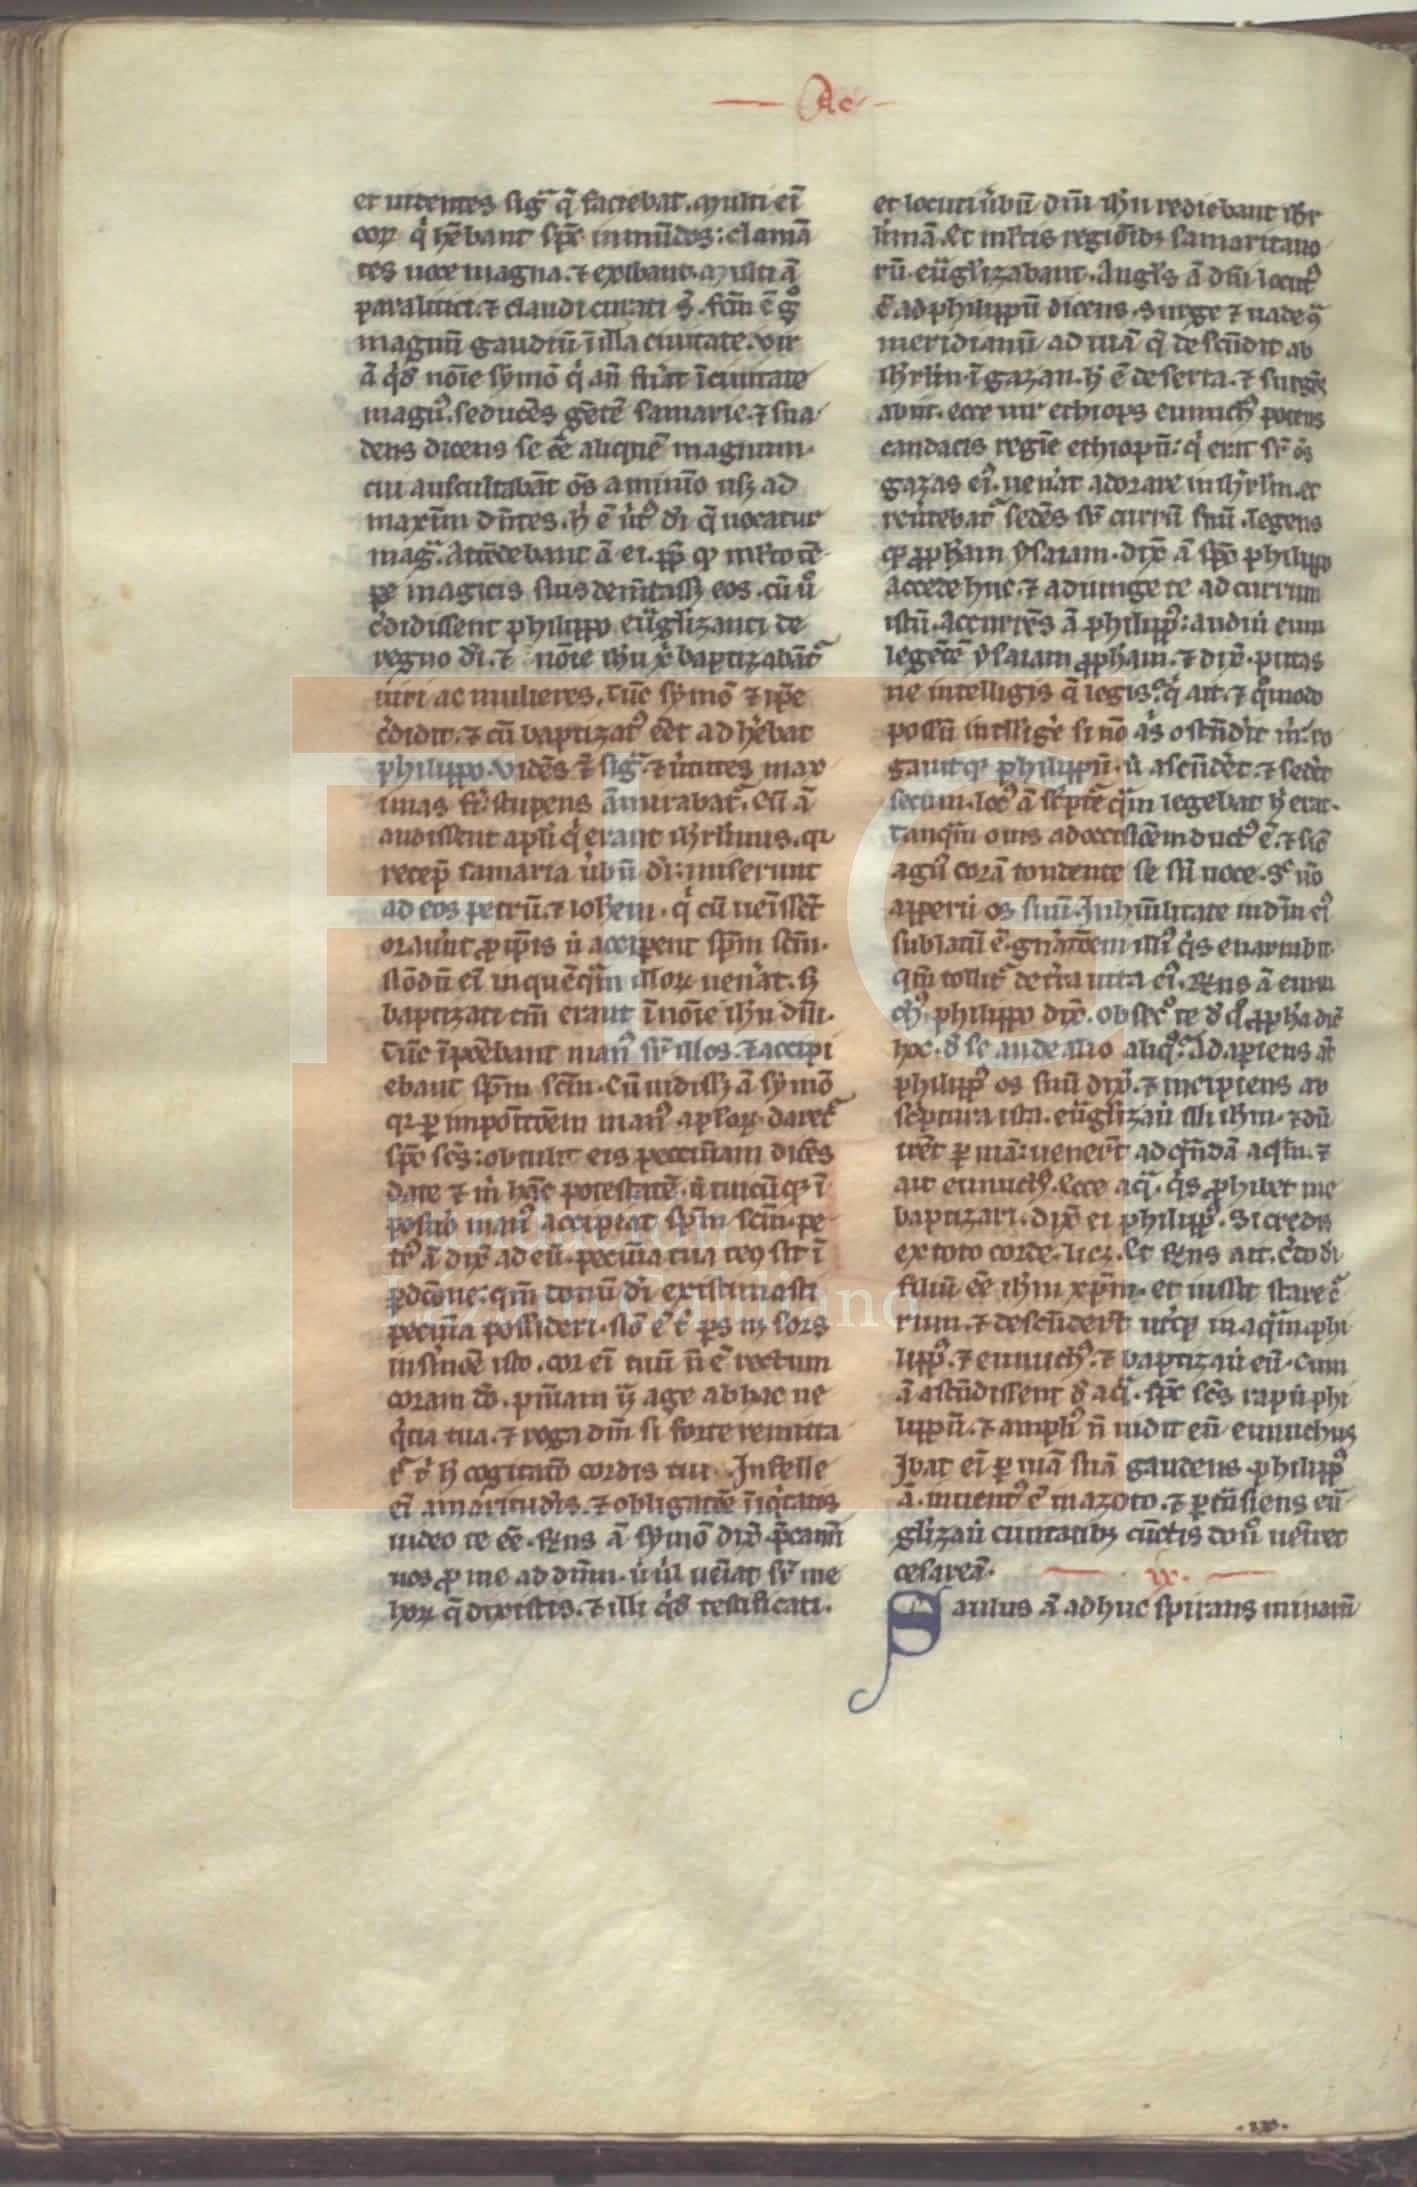 Ac
et uidentes sigͣ q̄ faciebat. Multi eī
eoꝝ q̇ hēbant sp̄c inmūdos: clamā
tes uoce magna. ⁊ exibant. Multi ā
paralitici. ⁊ claudi curati sͭ. fc̄m ē gͦ
magnū gaudiū ī illa ciuitate. Vir
ā q̇dā noīe symō q̇ an̄ fūat ī ciuitate
magꝰ. seducēs gētē samarie. ⁊ sua
dens dicens se eē aliquē magnum.
cui auscultabāt oīs a minīo usqꝫ ad
maxīm dicētes. h̄ ē u̇tꝰ dī q̄ uocatur
magͣ. Attēdebant ā ei. ꝓpt̄ qꝫ mlto tē
pe magicis suis demētassꝫ eos. cū uͦ
cͬdidissent philippo euglizanti de
regno dī. ⁊ noīe ihu x̄ baptizabātᷣ
uiri ac mulieres. Tūc symō ⁊ ip̄e
cͬdidit. ⁊ cū baptizatꝰ eēt adhẹbat
philippo. Vidēs ēt sigͣ. ⁊ u̇tutes max
imas fͥ. stupens āmirabatᷣ. Cū ā
audissent apl̄i q̇ erant ihrl̄imis. qꝛ
recep̄ samaria u̇bū dī: miserunt
ad eos petrū. ⁊ ioh̄em. q̇ cū uenīssēt
orauͬnt ꝓ ip̄is u̇ acciperent sp̄m sc̄m.
Nōdū eī in quēqͣm illoꝝ uenͬat. sꝫ
baptizati tm̄ erant ī noīe ihu dn̄i.
Tūc īpōebant manꝰ sꝛ̄ illos. ⁊ accipi
ebant sp̄m sc̄m. Cū uidissꝫ ā symō
qꝛ ꝑ impoītōem manꝰ aploꝝ daretᷣ
sp̄c sc̄s: obtulit eis pecuniam dicēs
date ⁊ m̄ hāc potestatē. u̇ cuicūqꝫ ī
posuͦo manꝰ accipiat sp̄m sc̄m. Pe
trꝰ ā dix̄ ad eū. pecunia tua tecū sit ī
ꝑdicōne: qm̄ donū dī existimasti
pecunia possideri. Nō ē tͥ ꝑs nꝫ sors
in sͬmōe isto. Cor eī tuū n̄ ē rectum
coram dō. Pn̄iam ꝗ age ab hac ne
q̇tia tua. ⁊ roga dm̄ si forte remitta
tᷣ tͥ h̄ cogitatō cordis tui. In felle
eī amaritudīs. ⁊ obligatōe iniq̇tatis
uideo te eē. Rn̄s ā symō dix̄. p̄camī
uos ꝓ me ad dn̄m. u̇ nl̄ ueniat sꝛ̄ me
hoꝝ q̄ dixistis. ⁊ illi q̇dē testificati.
et locuti u̇bū dn̄i ihu rediebant ihr
l̄imā. Et ml̄tis regionibꝫ samaritano
rū. euglizabant. Anglꝰs ā dn̄i locutꝰ
ē ad philippū dicens. Surge ⁊ uade 9ͣ
meridianū ad uiā q̄ descēdit ab
ihrl̄m. ī gazan. h̄ ē deserta. ⁊ surgēs
abiit. ecce uir ethiops eunuchꝰ potens
candacis regīe ethiopū: q̇ erat sꝛ̄ oēs
gazas eiꝰ. uenͬat adorare in ihrl̄m. et
reu̇tebatᷣ sedēs sꝛ̄ currū suū. legens
qꝫ ꝓph̄am ysaiam. Dix̄ ā sp̄c philippo
accede huc. ⁊ adiunge te ad currum
istū. Accurrēs ā philippꝰ: audiuͥ eum
legētē ysaiam ꝓph̄am. ⁊ dix̄. putas
ne intelligis q̄ legis. q̇ ait. ⁊ qͦmodo
possū intelligͬe si nō aͥs ostendͬit m̄. Ro
gauitqꝫ philippū. u̇ ascendͬet. ⁊ sedēt
secum. Locꝰ ā scͥptͤ qͣm legebat h̄ erat.
Tanqͣm ouis ad occisiōem ductꝰ ē. ⁊ sicͭ
agnꝰ corā tondente se sn̄ uoce. sͨ nō
apperuͥ os suū. In humilitate iudm̄ eiꝰ
sublatū ē. gn̄atōem illiꝰ q̇s enarrabit.
qm̄ tollitᷣ de tͬra uita eiꝰ. Rn̄s ā eunu
chꝰ philippo dix̄. obsecͦ te d̄ qͦ ꝓph̄a dic̄
hoc. d̄ se an de alio aliqͦ. Adapiens āt
philippꝰ os suū dix̄. ⁊ incipiens ab
scͥptura ista. euglizauͥ illi ihm. ⁊ dū
irēt ꝑ uiā: ueneͬt ad qn̄dā aqͣm. ⁊
ait eunuchꝰ. Ecce aqͣ. q̇s ꝓhibet me
baptizari. Dix̄ ei philippꝰ. Si credis
ex toto corde. licꝫ. Et Rn̄s ait. cͬdo dī
filiū eē ihm xp̄m. et iussit stare cᷣ
rum. ⁊ descēderͭ utͬqꝫ in aqͣm. phi
lippꝰ. ⁊ eunuchꝰ. ⁊ baptizauͥ eū. Cum
ā ascēdissent d̄ aqͣ. sp̄c sc̄s rapuͥ phi
lippū. ⁊ ampliꝰ n̄ uidit eū eunuchus
Ibat eī ꝑ uiā suā gaudens. philippꝰ
ā. inuentꝰ ē in azoto. ⁊ ꝑtͣnsiens eū
glizauͥ ciuitatibꝫ cūctis doͨ uenīret
cesareā.
.ix.
Saulus ā adhuc spirans minarū